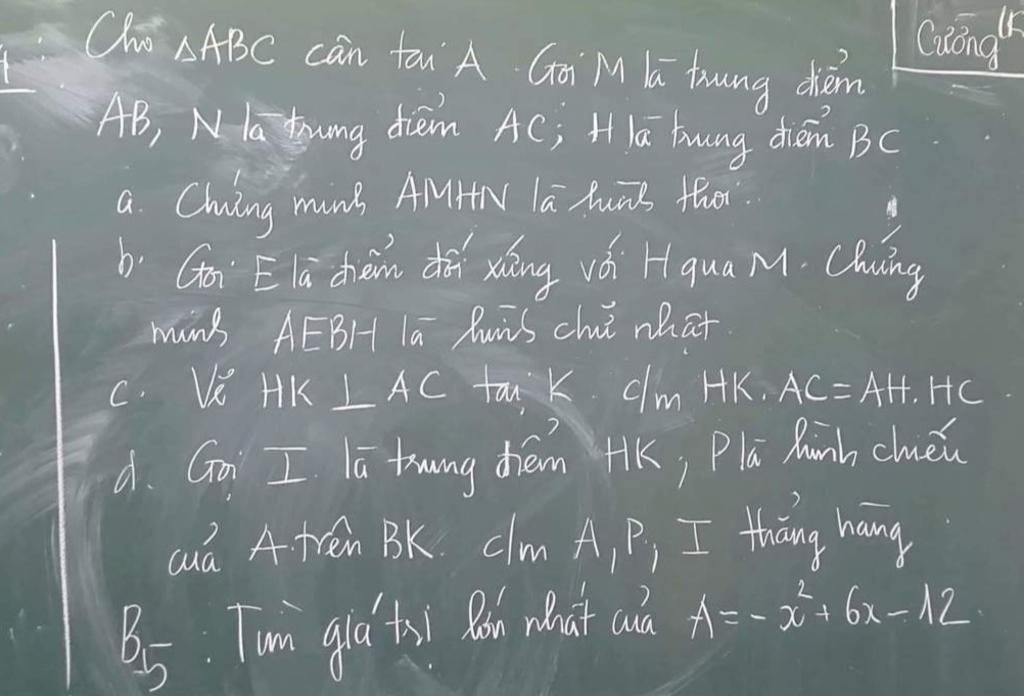 Cường
Cho △ABC cân tại A. Gọi M là trung điểm
AB, N là trung điểm AC; H là trung điểm BC.
a. Chứng minh AMHN là hình thoi.
b. Gọi E là điểm đối xứng với H qua M. Chứng
minh AEBH là hình chữ nhật.
c. Vẽ HK ⊥ AC tại K. c/m HK.AC=AH.HC
d. Gọi I là trung điểm HK; P là hình chiếu
của A trên BK. c/m A, P, I thẳng hàng
B5: Tìm giá trị lớn nhất của A=-x²+6x-12.